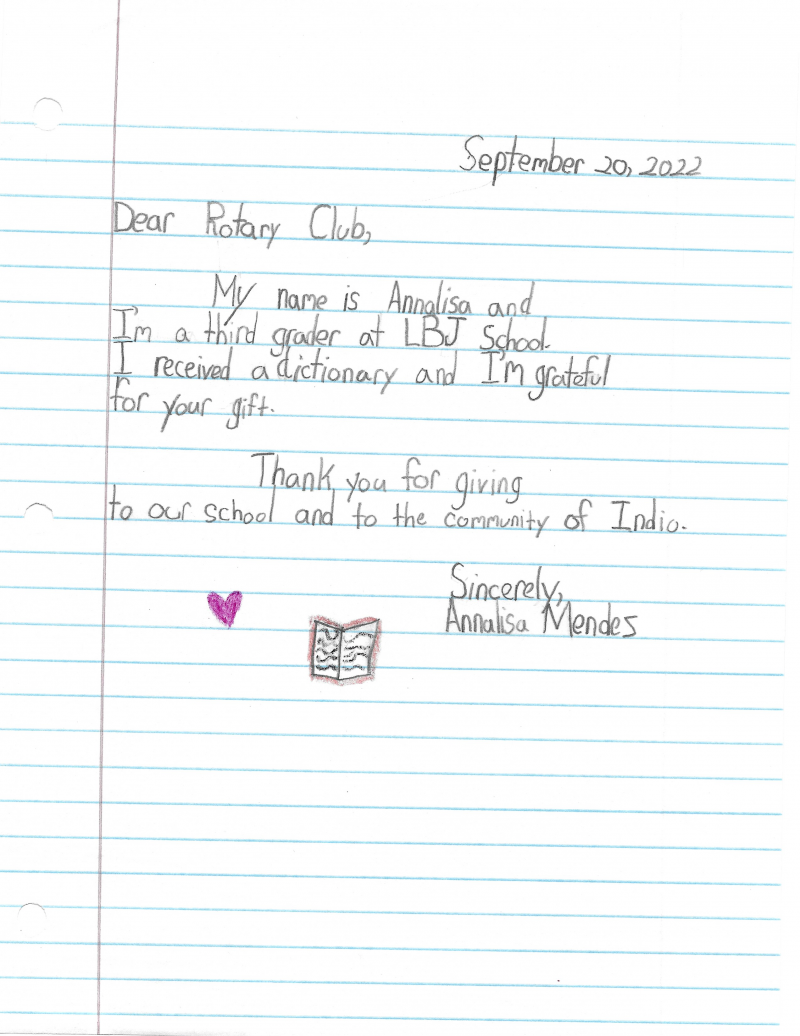 September 20, 2022
Dear Rotary Club,
My name is Annalisa and
I'm a third grader at LBJ School.
I received a dictionary and I'm grateful
for your gift.
Thank you for giving
to our school and to the community of Indio.
Sincerely,
Annalisa Mendes